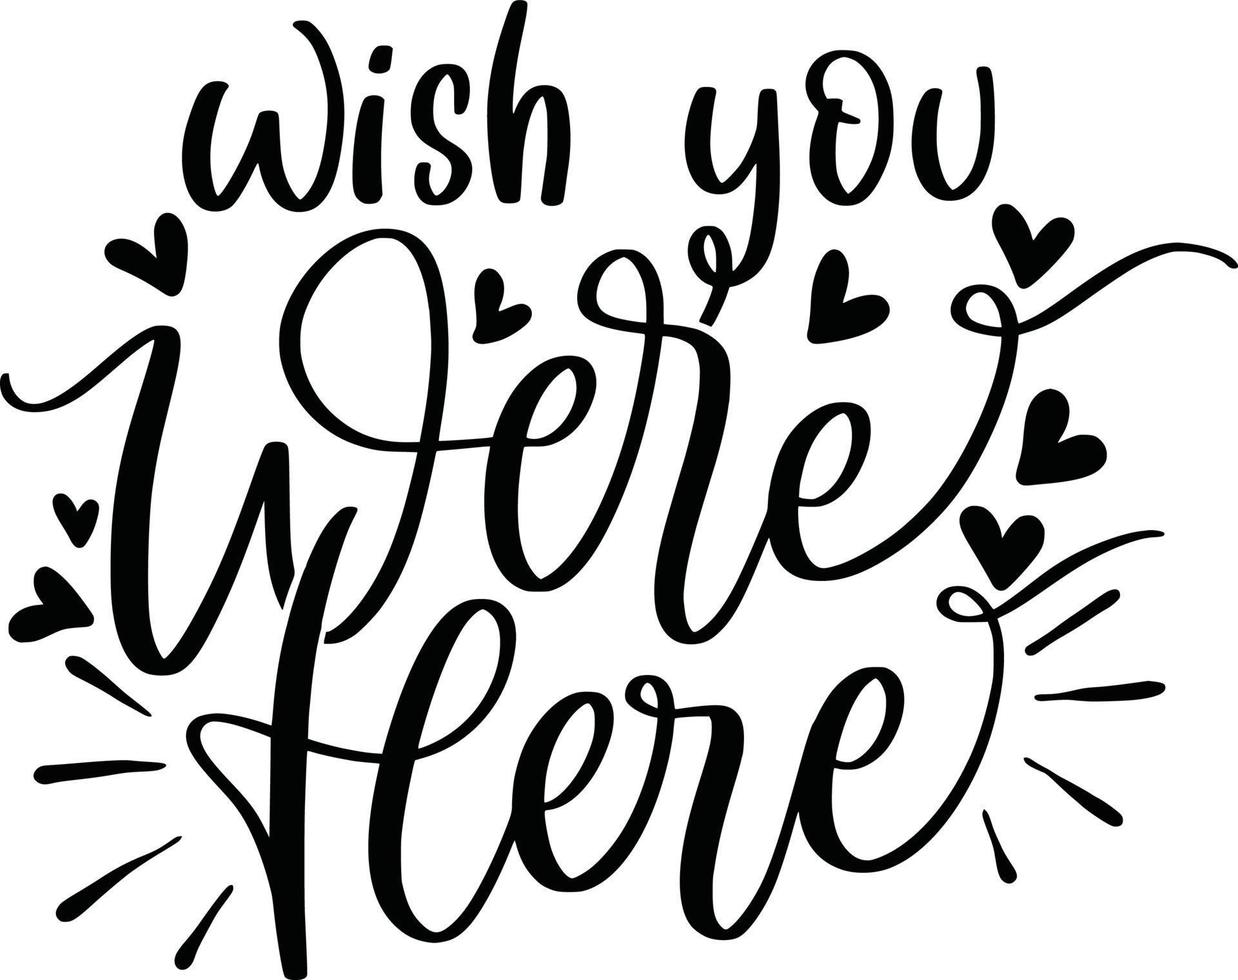 Wish you
Were
Here